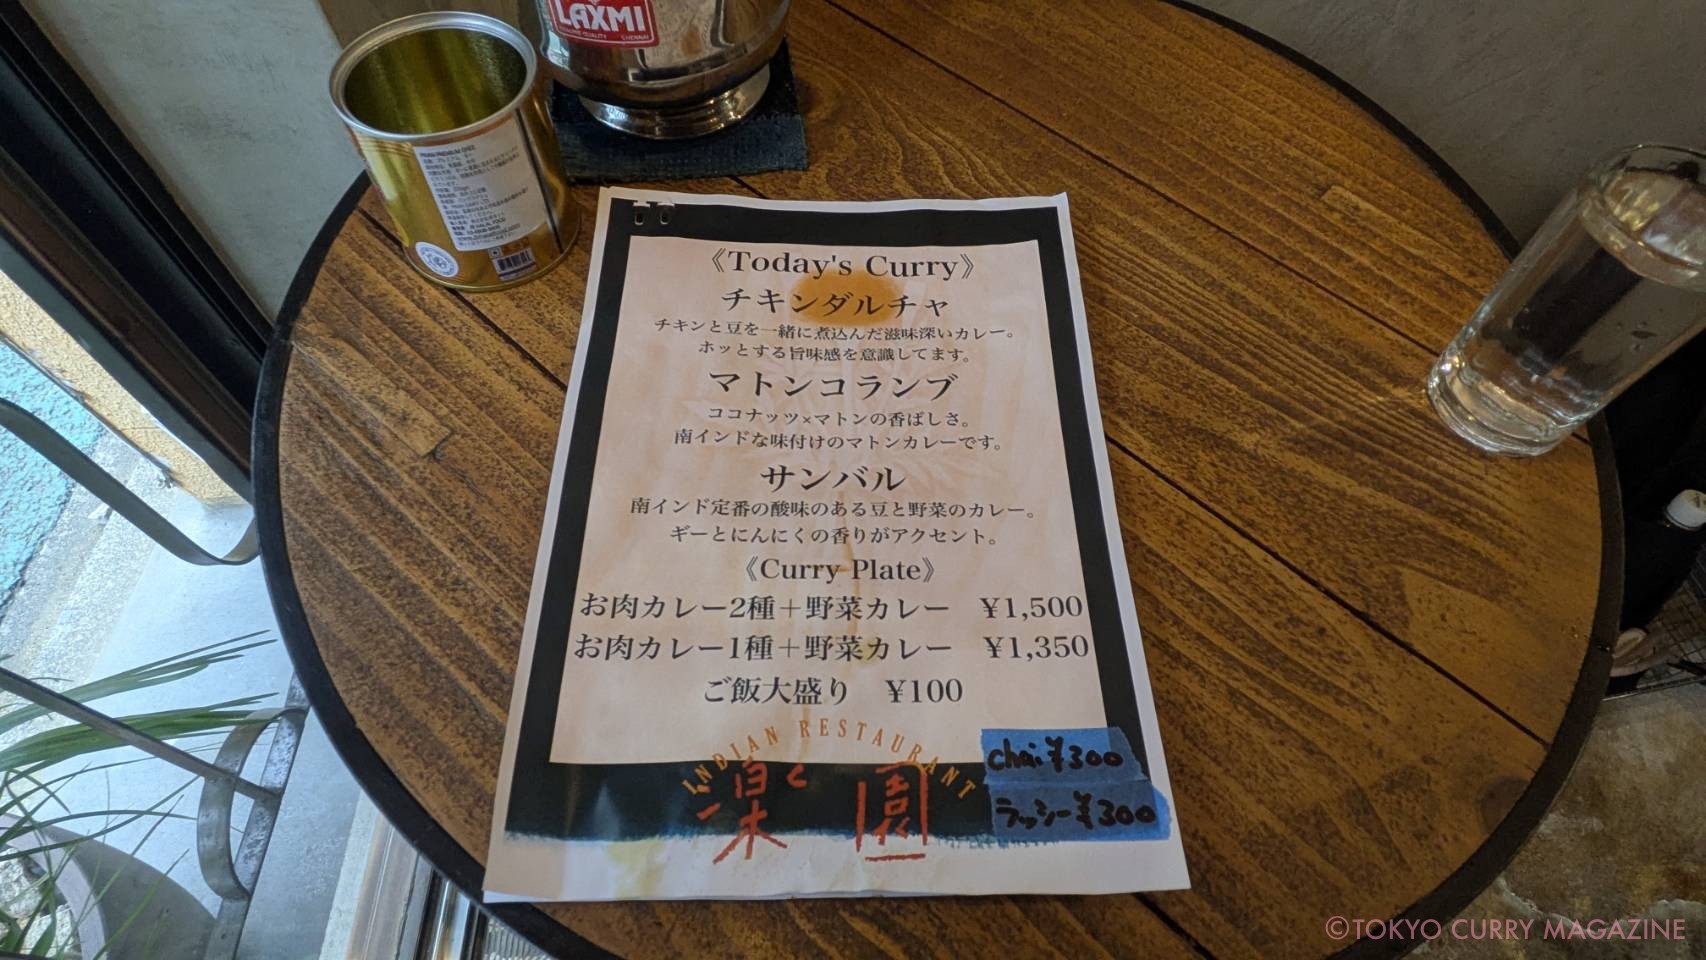 LAXMI
CHENNAI
《Today's Curry》
チキンダルチャ
チキンと豆を一緒に煮込んだ滋味深いカレー。
ホッとする旨味感を意識してます。
マトンコランブ
ココナッツ×マトンの香ばしさ。
南インドな味付けのマトンカレーです。
サンバル
南インド定番の酸味のある豆と野菜のカレー。
ギーとにんにくの香りがアクセント。
《Curry Plate》
お肉カレー2種＋野菜カレー ¥1,500
お肉カレー1種＋野菜カレー ¥1,350
ご飯大盛り ¥100
INDIAN RESTAURANT
楽園
chai ¥300
ラッシー ¥300
©TOKYO CURRY MAGAZINE